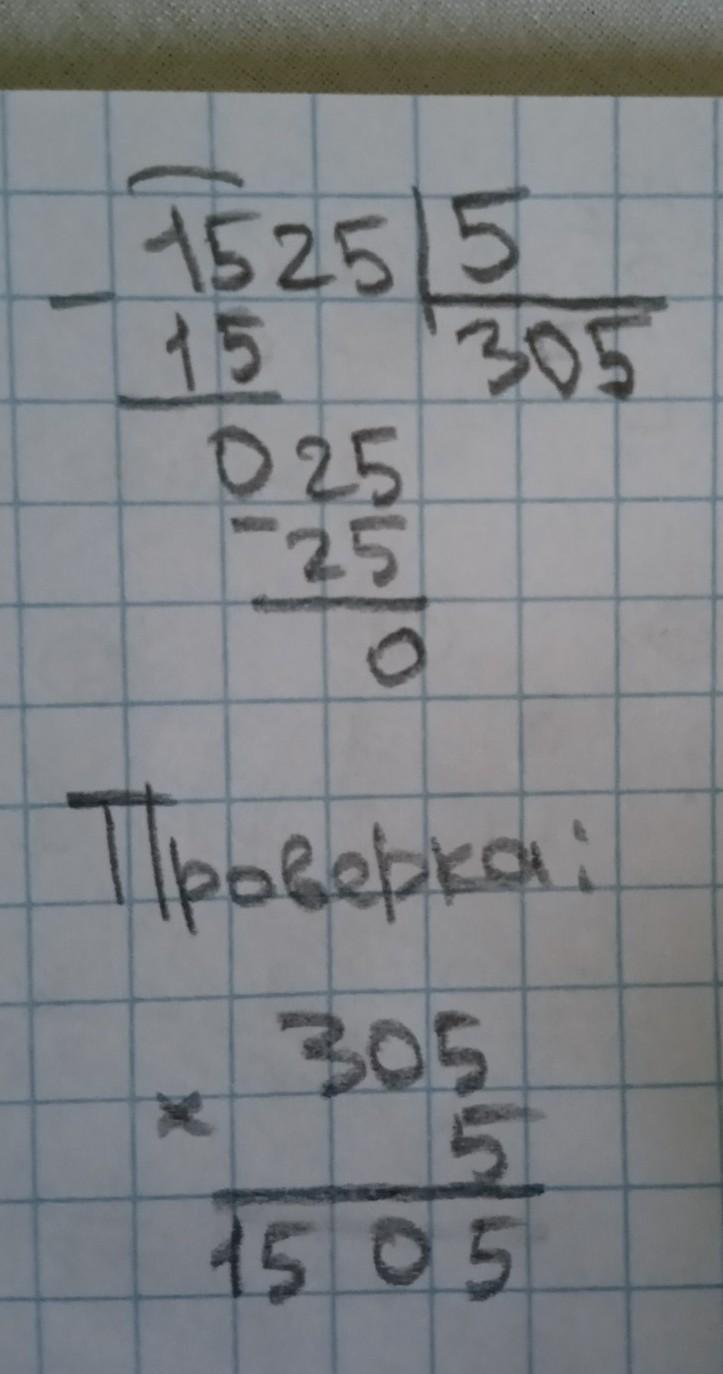 1525 | 5
- 15 305
025
- 25
0
Проверка:
305
× 5
1505